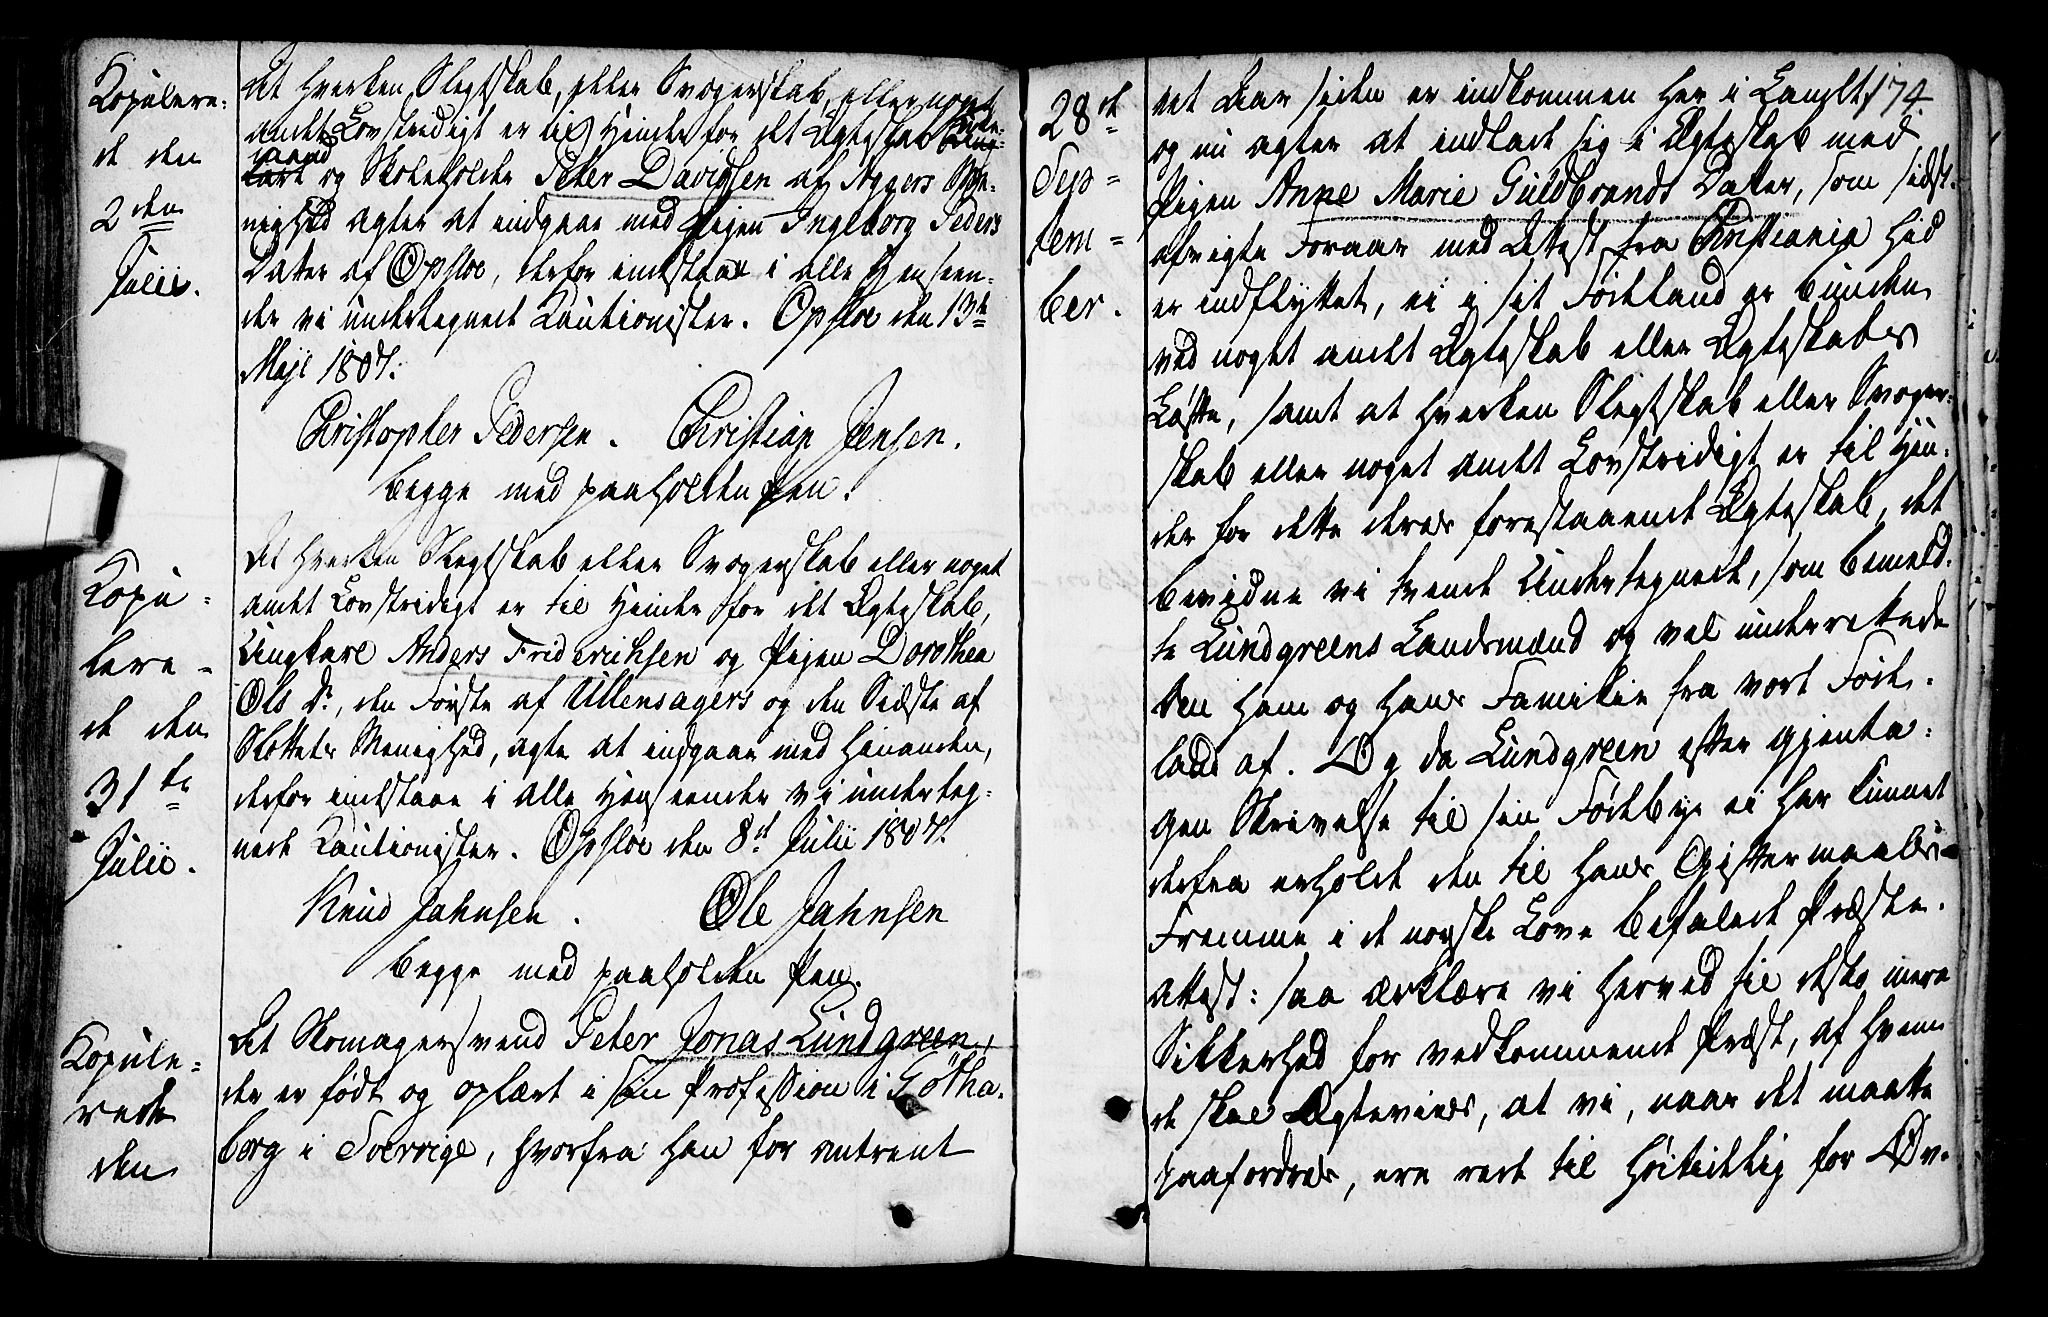 Kopulere-
de den
2den
Julii.
At hverken Slegtskab, eller Svogerskab, eller noget
andet Lovstridigt er til Hinder for det Ægteskab
mand
karl og Skoleholder Peter Davidsen af Aggers Me-
nighed agter at indgaae med Pigen Ingeborg Peders
Datter af Opsloe, derfor indstaae i alle Henseen-
der vi undertegnede Kautionister. Opsloe den 13de
Maji 1807.
Christopher Pedersen. Christian Jensen.
begge med paaholden Pen.
Kopu-
lere-
de den
31te
Julii.
At hverken Slegtskab eller Svogerskab eller noget
andet Lovstridigt er til Hinder for det Ægteskab,
Ungkarl Anders Friderichsen og Pigen Dorothea
Ols Dr., den Første af Ullensagers og den Sidste af
Slottets Menighed, agte at indgaae med hinanden,
derfor indstaae i alle Henseender vi underteg-
nede Kautionister. Opsloe den 8de Julii 1807.
Knud Jahnsen. Ole Jahnsen
begge med paaholden Pen.
Kopule-
rede
den
At Skomagersvend Peter Jonas Lundgreen,
der er født og oplært i sin Profession i Götha-
borg i Sverrige, hvorfra han for omtrent
174
28de
Sep-
tem-
ber.
et Aar siden er indkommen her i Landet,
og nu agter at indlade sig i Ægteskab med
Pigen Anne Marie Guldbrands Datter, som sidst-
afvigte Foraar med Attest fra Christiania hid
er indflyttet, ei i sit Fødeland er bunden
ved noget andet Ægteskab eller Ægteskabs
Løfte, samt at hverken Slegtskab eller Svoger-
skab eller noget andet Lovstridigt er til Hin-
der for dette deres forestaaende Ægteskab, det
bevidne vi tvende Undertegnede, som bemeld-
te Lundgreens Landsmænd og vel underrettede
om ham og hans Familie fra vort Føde-
land af. Og da Lundgreen efter gjenta-
gen Skrivelse til sin Fødebye ei har kunnet
derfra erholde den til hans Giftermaals
Fremme i de norske Love befalede Præste-
attest: saa erklære vi herved til desto mere
Sikkerhed for vedkommende Præst, af hvem
de skal Ægtevies, at vi, naar det maatte
paafordres, ere rede til høitidelig for Øv-